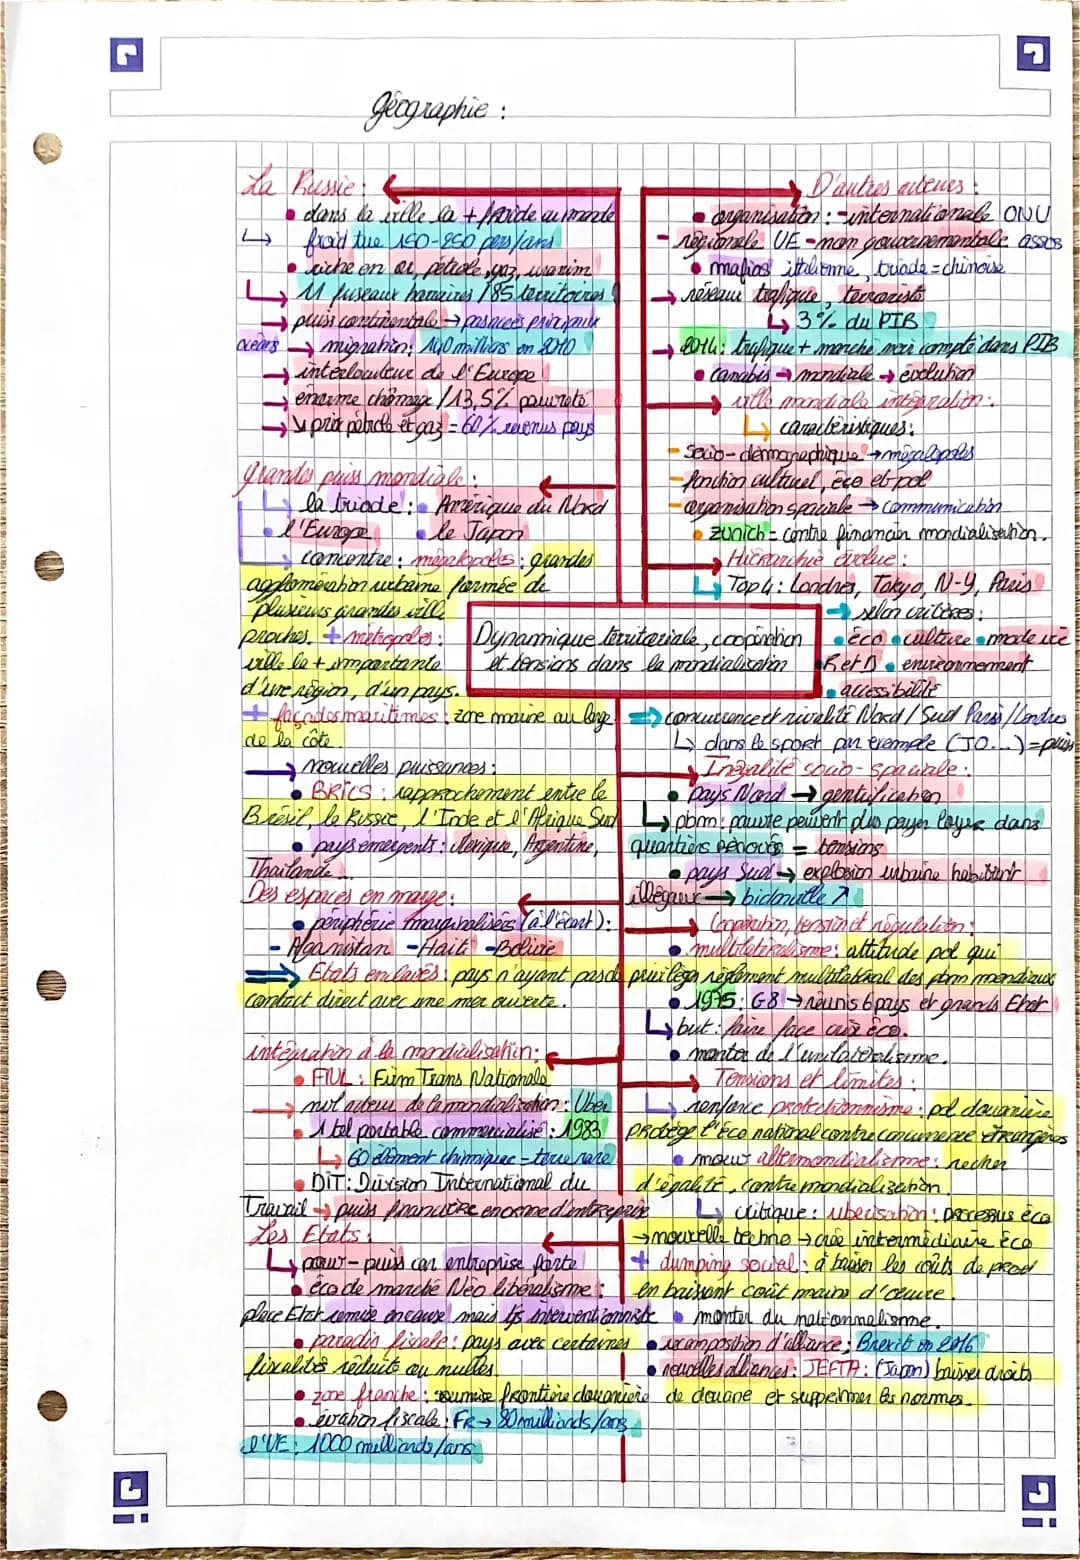 Géographie :
La Russie :
• dans la ville la + froide au monde
↳ froid tue 150-250 pers/ans
• riche en or, pétrole, gaz, uranim
↳ 11 fuseaux horaires / 85 territoires
→ puiss continentale → pas accès principaux
océans → migration : 140 millions en 2010
→ interlocuteur de l'Europe
→ énorme chômage / 13,5% pauvreté
→ ↘ prix pétrole et gaz = 60% revenus pays
grandes puiss mondiale :
↳ la triade : • Amérique du Nord
• l'Europe • le Japon
↳ concentre : mégalopoles : grandes
agglomération urbaine formée de
plusieurs grandes ville
proches. + métropoles :
ville la + importante
d'une région, d'un pays.
+ façades maritimes : zone marine au large
de la côte.
→ nouvelles puissances :
• BRICS : rapprochement entre le
Brésil, la Russie, l'Inde et l'Afrique Sud
• pays émergents : Mexique, Argentine,
Thaïlande...
Des espaces en marge :
• périphérie marginalisées (à l'écart) :
- Afganistan - Haïti - Bolivie
⇒ Etats enclavés : pays n'ayant pas de
contact direct avec une mer ouverte.
intégration à la mondialisation :
• FTN : Firm Trans Nationale
→ nvl acteur de la mondialisation : Uber
• 1 tel portable commercialisé : 1983
↳ 60 élément chimique = terre rare
• DIT : Division International du
Travail → puiss financière enorme d'entreprise
Les Etats :
↳ pouv - puiss car entreprise forte
• éco de marché Néo libéralisme :
place Etat remise en cause mais tjs interventionniste
• paradis fiscale : pays avec certaines
fiscalités réduits ou nulles.
• zone franche : soumise frontière douanière
• évasion fiscale : FR → 80 milliards/ans
l'UE : 1000 milliards/ans
Dynamique territoriale, coopération
et tensions dans la mondialisation
D'autres acteurs :
• organisation : - internationale ONU
- régionale UE - non gouvernementale assos
• mafias ittalienne, triade = chinoise
→ réseau trafique, terroriste
↳ 3% du PIB
→ 2014 : trafique + marché noir compté dans PIB
• canabis → mondiale → évolution
→ ville mondiale intégration :
↳ caractéristiques :
- Socio-démographique → mégalopoles
- fonction culturel, éco et pol
- organisation spaciale → communication
• zurich = centre financier mondialisation.
→ Hiérarchie évolue :
↳ Top 4 : Londres, Tokyo, N-Y, Paris
→ selon critères :
• éco • culture • mode vie
• R et D • environnement
• accessibilité
⇒ concurrence et rivalité Nord / Sud Paris / Londres
↳ dans le sport par exemple (JO...) = puiss
→ Inégalité socio-spaciale :
• pays Nord → gentrification
↳ pbm : pauvre peuvent plus payer loyer dans
quartiers rénovés = tensions
• pays Sud → explosion urbaine habitant
illégaux → bidonville ↗
→ Coopération, tension et régulation :
• multilatéralisme : attitude pol qui
privilégie règlement multilatéral des pbm mondiaux
• 1975 : G8 → réunis 6 pays et grands Etat
↳ but : faire face crise éco.
• montée de l'unilatéralisme.
→ Tensions et limites :
↳ renforce protectionnisme : pol douanière
protège l'éco national contre concurrence étrangères
• mouv altermondialisme : recher
d'égalité, contre mondialisation.
↳ critique : ubérisation : processus éco
→ nouvelle techno → crée intermédiaire éco
+ dumping social : à baisser les coûts de prod
en baissant coût main d'œuvre.
• monter du nationnalisme.
• recomposition d'alliance : Brexit en 2016
• nouvelles alliances : JEFTA : (Japon) baisser droits
de douane et supprimer les normes.